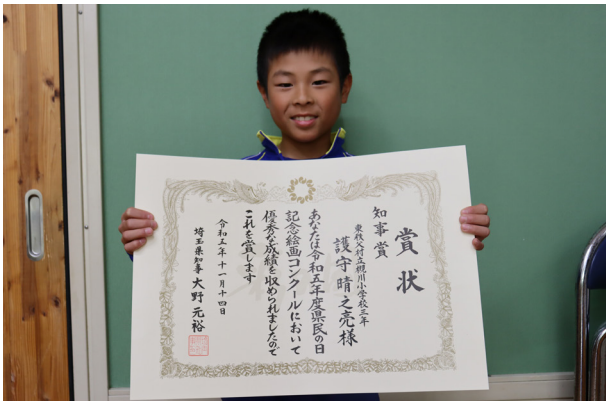 賞状
知事賞
東秩父村立槻川小学校三年
護守晴之亮様
あなたは令和五年度県民の日
記念絵画コンクールにおいて
優秀な成績を収められましたので
これを賞します
令和五年十一月十四日
埼玉県知事 大野元裕